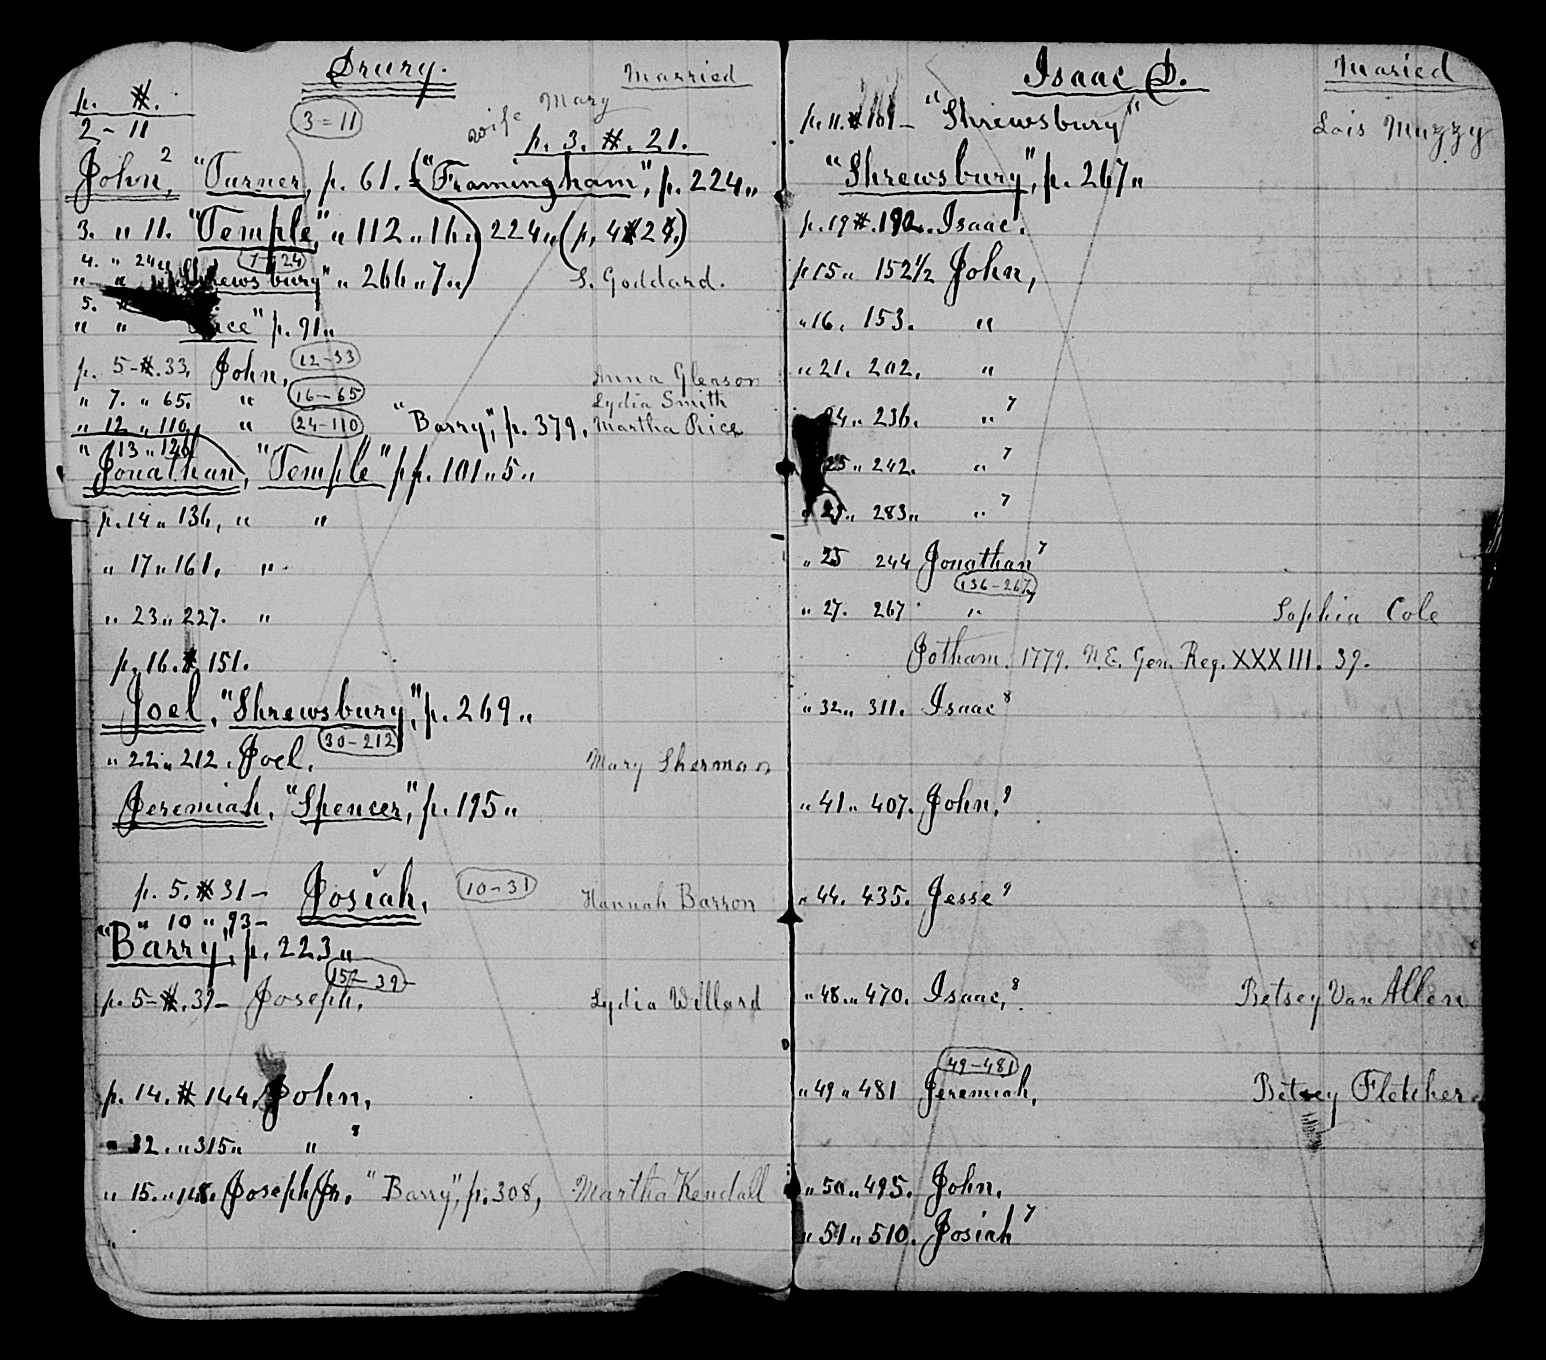 Drury.
Married
p. #.
2-11
3=11
wife Mary
p. 3. #. 21.
John,² "Turner, p. 61. "Framingham", p. 224„
3. „ 11. "Temple," „ 112 „ 16. 224„ (p. 4 # 24.)
4. „ 24
7-24
„ „ Shrewsbury" „ 266 „ 7„ S. Goddard.
5. #
„ „ Rice" p. 91„
p. 5-#.33. John, 12-33 Anna Gleason
„ 7. „ 65. „ 16-65 Lydia Smith
„ 12 „ 110. „ 24-110 "Barry", p. 379, Martha Rice
„ 13 „ 126
Jonathan, "Temple" pp. 101 „ 5„
p. 14 „ 136, „ „
„ 17 „ 161. „
„ 23 „ 227. „
p. 16. # 151.
Joel, "Shrewsbury", p. 269„
30-212
„ 22 „ 212. Joel. Mary Sherman
Jeremiah, "Spencer", p. 195„
p. 5. # 31- Josiah, 10-31 Hannah Barron
„ 10 „ 93-
"Barry", p. 223„
157-39
p. 5-#.39- Joseph, Lydia Willard
p. 14. # 144. John,
„ 32. „ 315„ „ ⁸
„ 15. „ 148. Joseph Jr, "Barry", p. 308, Martha Kendall
Isaac D.
Maried
p. 11. # 101- "Shrewsbury" Lois Muzzy
"Shrewsbury", p. 267„
p. 19 #. 192. Isaac.
p 15 „ 152½ John,
„ 16. 153. „
„ 21. 202. „
24 „ 236. „ ⁷
25 „ 242. „ ⁷
„ 25„ 283„ „ ⁷
„ 25 244 Jonathan⁷
136-267
„ 27. 267 „ Sophia Cole
Jotham. 1779. N.E. Gen. Reg. XXXIII. 39.
„ 32 „ 311. Isaac⁸
„ 41 „ 407. John,⁹
„ 44. 435. Jesse⁹
„ 48. „ 470. Isaac,⁸ Betsey Van Allen
49-481
„ 49 „ 481 Jeremiah, Betsey Fletcher
„ 50 „ 495. John.
„ 51 „ 510. Josiah⁷